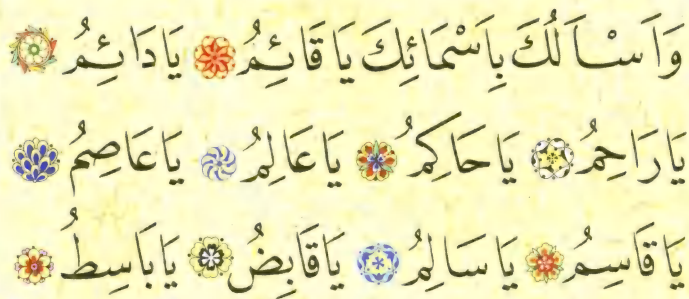 وَاَسْاَلُكَ بِاَسْمَائِكَ يَا قَائِمُ يَا دَائِمُ
يَا رَاحِمُ يَا حَاكِمُ يَا عَالِمُ يَا عَاصِمُ
يَا قَاسِمُ يَا سَالِمُ يَا قَابِضُ يَا بَاسِطُ